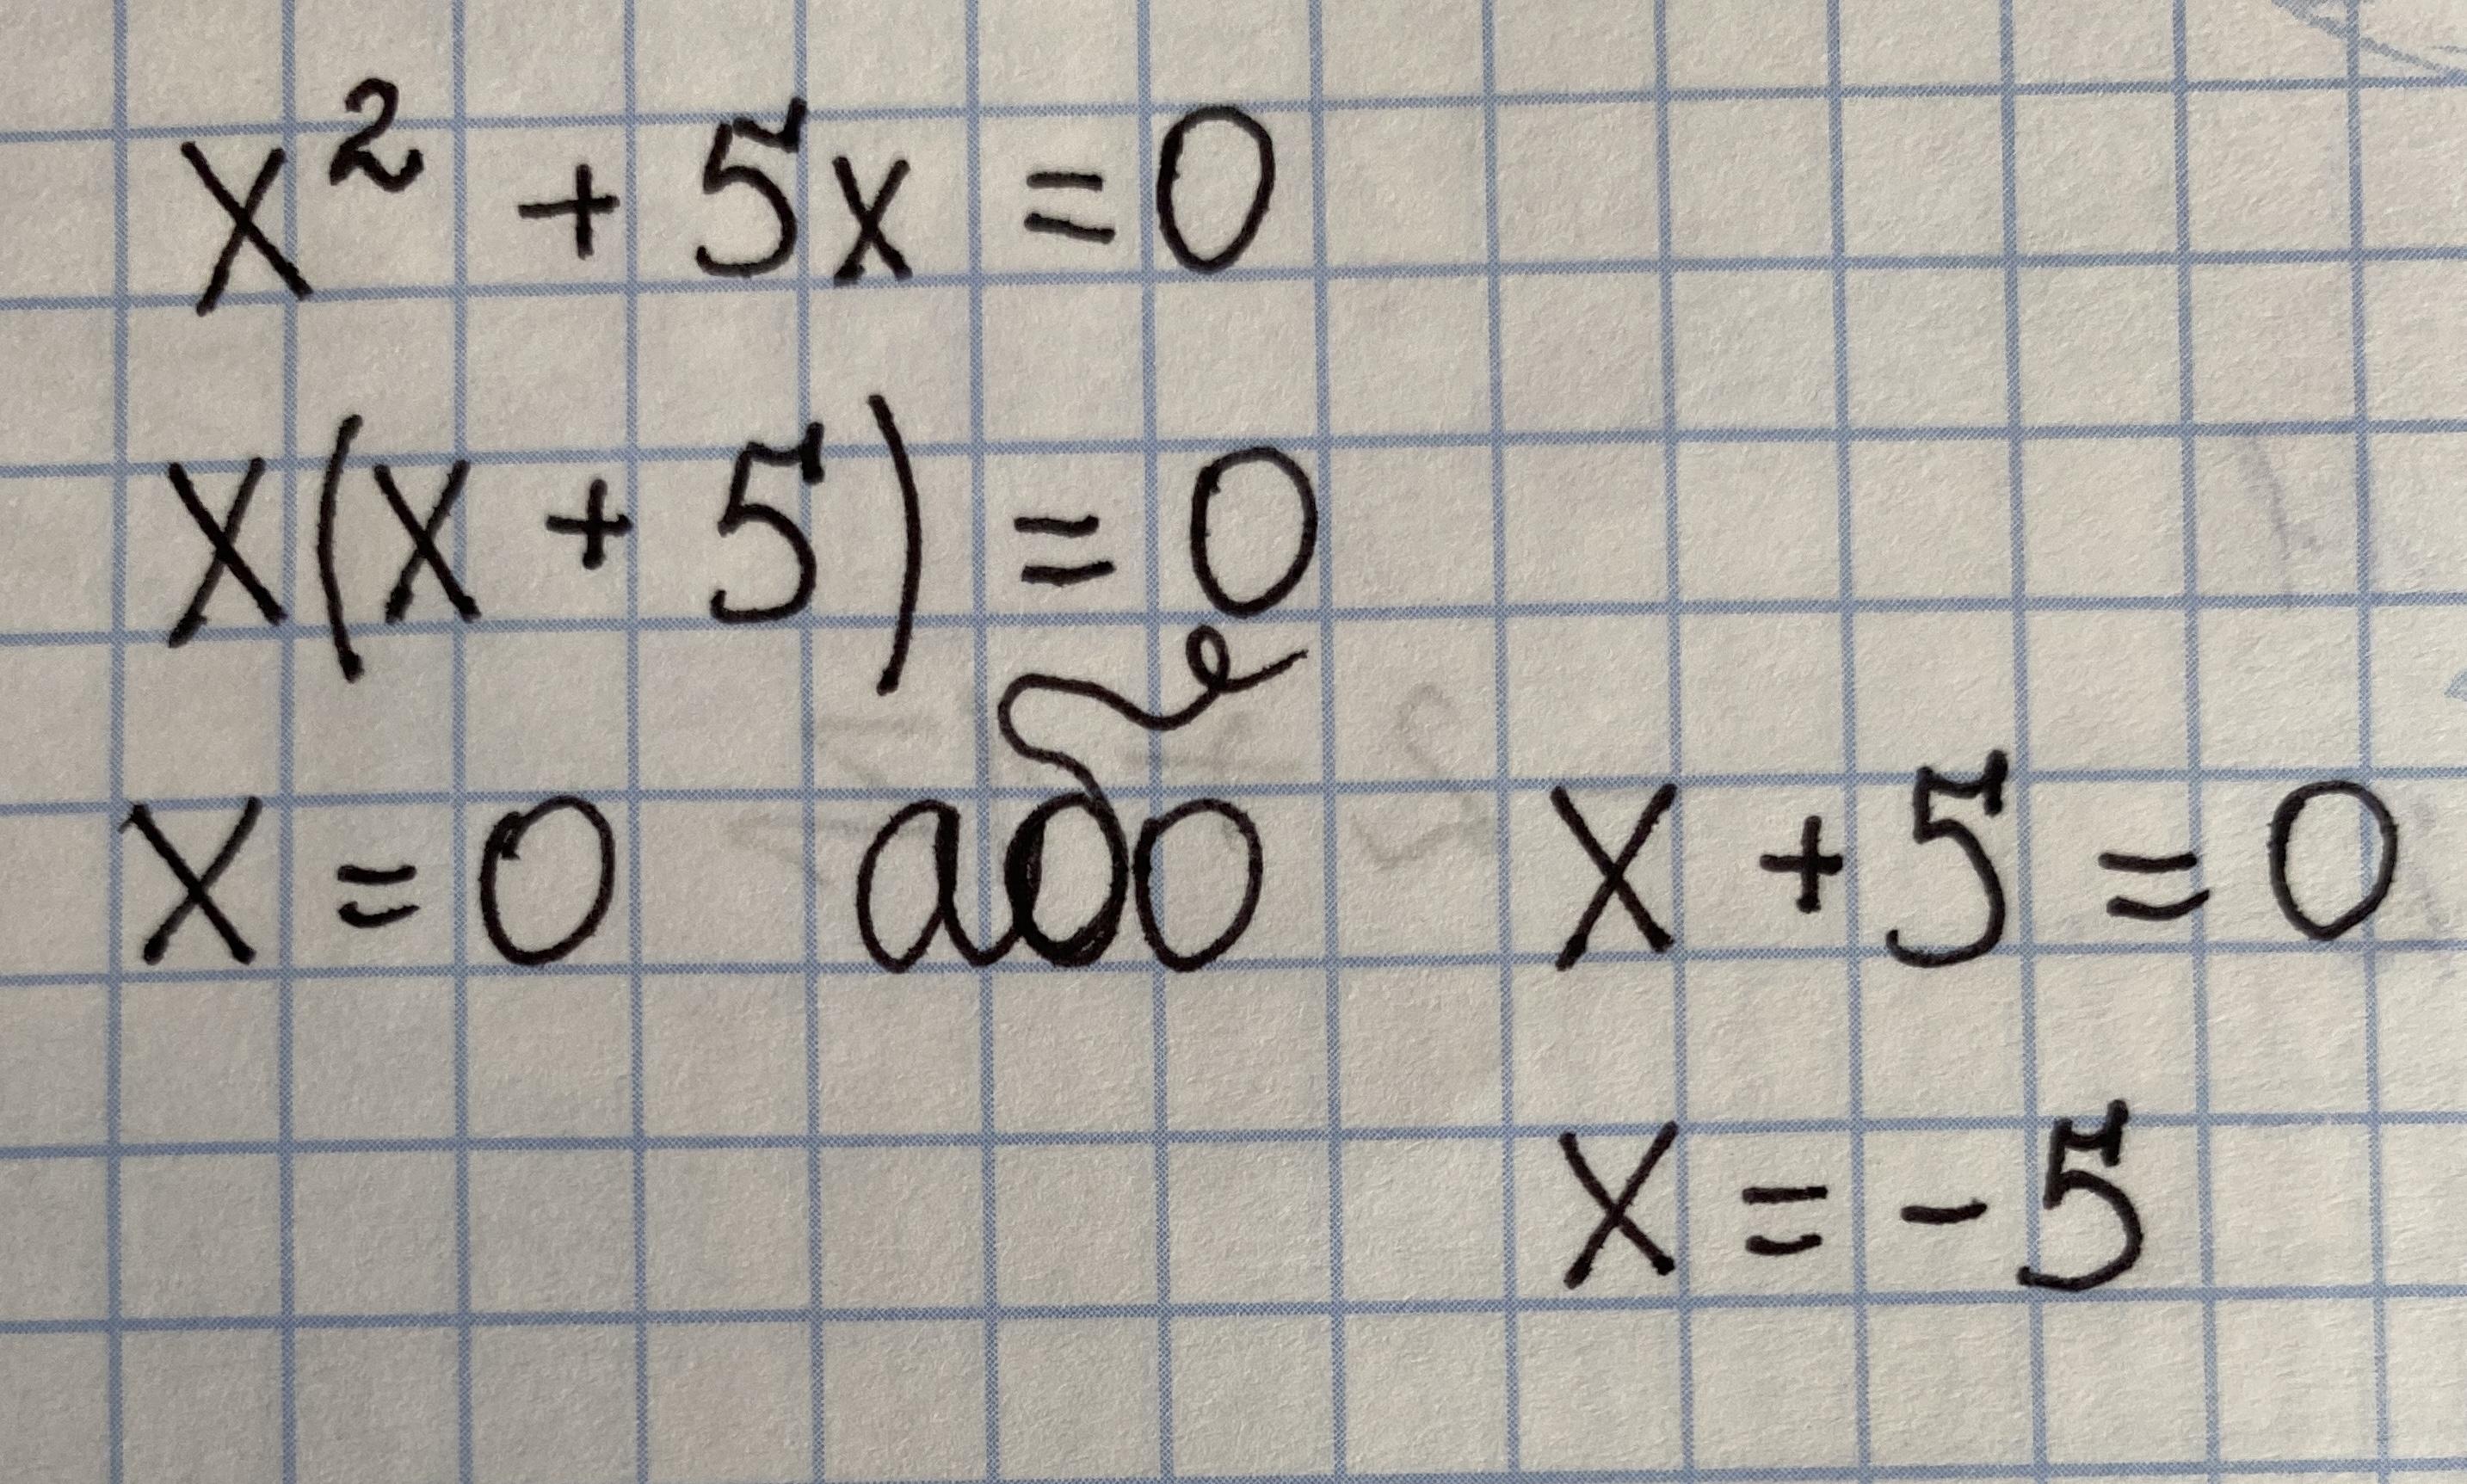 x² + 5x = 0
x(x + 5) = 0
x = 0 або x + 5 = 0
x = -5